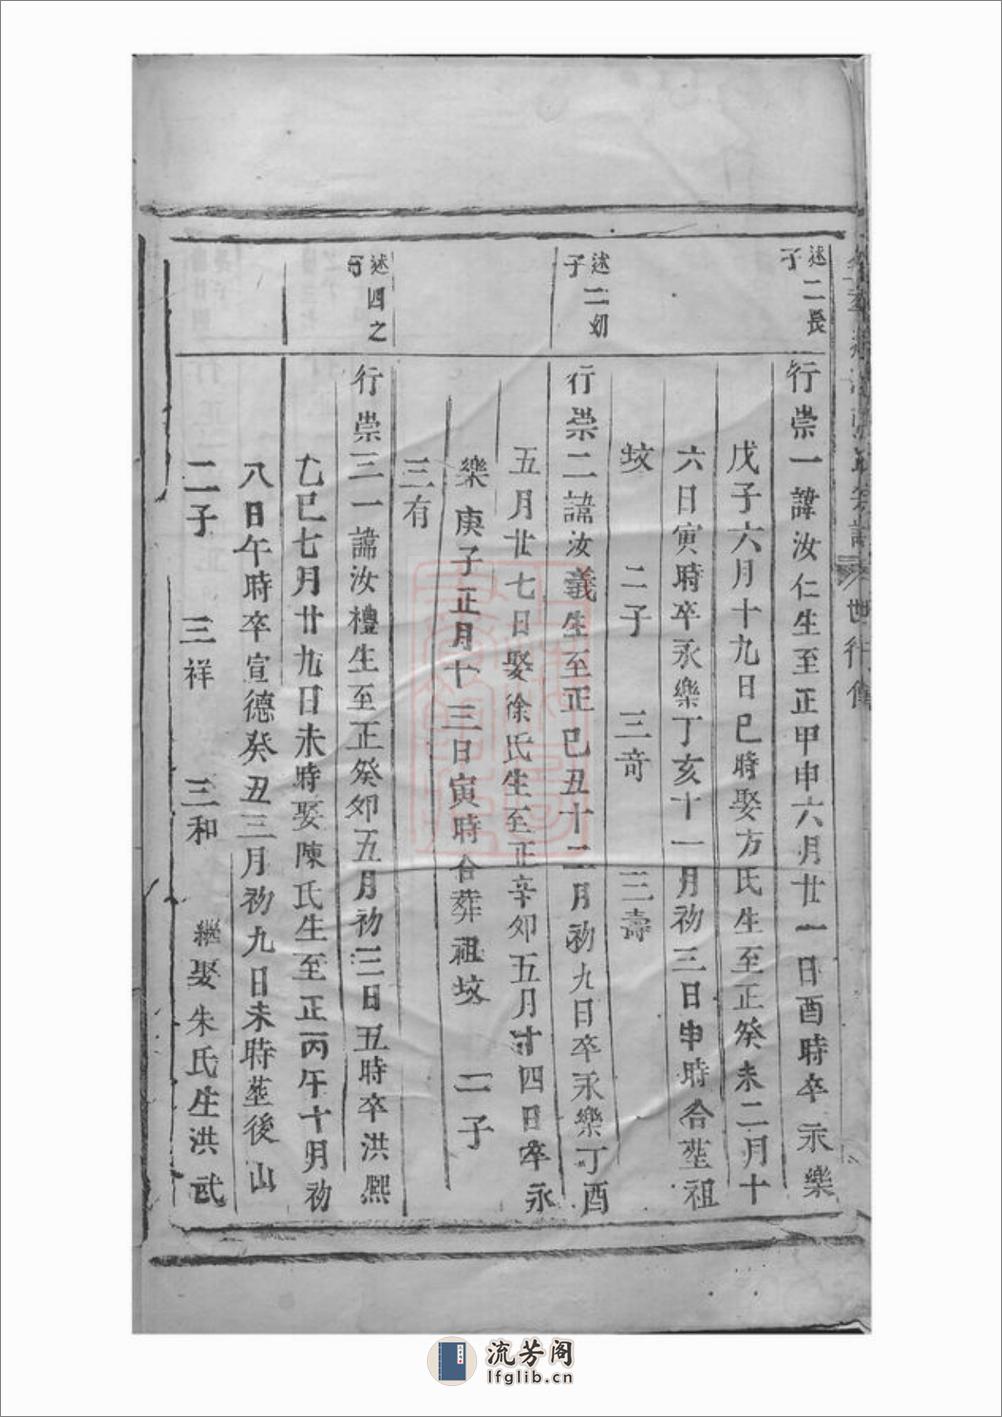 述二長
子
行崇一諱汝仁生至正甲申六月廿一日酉時卒永樂
戊子六月十九日巳時娶方氏生至正癸未二月十
六日寅時卒永樂丁亥十一月初三日申時合塟祖
坟 二子 三奇 三壽
述二幼
子
行崇二諱汝義生至正己丑十二月初九日卒永樂丁酉
五月廿七日娶徐氏生至正辛卯五月廿四日卒永
樂庚子正月十三日寅時合葬祖坟 二子
三有
述四之
子
行崇三一諱汝禮生至正癸卯五月初三日丑時卒洪熈
乙巳七月廿九日未時娶陳氏生至正丙午十月初
八日午時卒宣德癸丑三月初九日未時塟後山
二子 三祥 三和 繼娶朱氏生洪武
世行傳
流芳阁
lfglib.cn